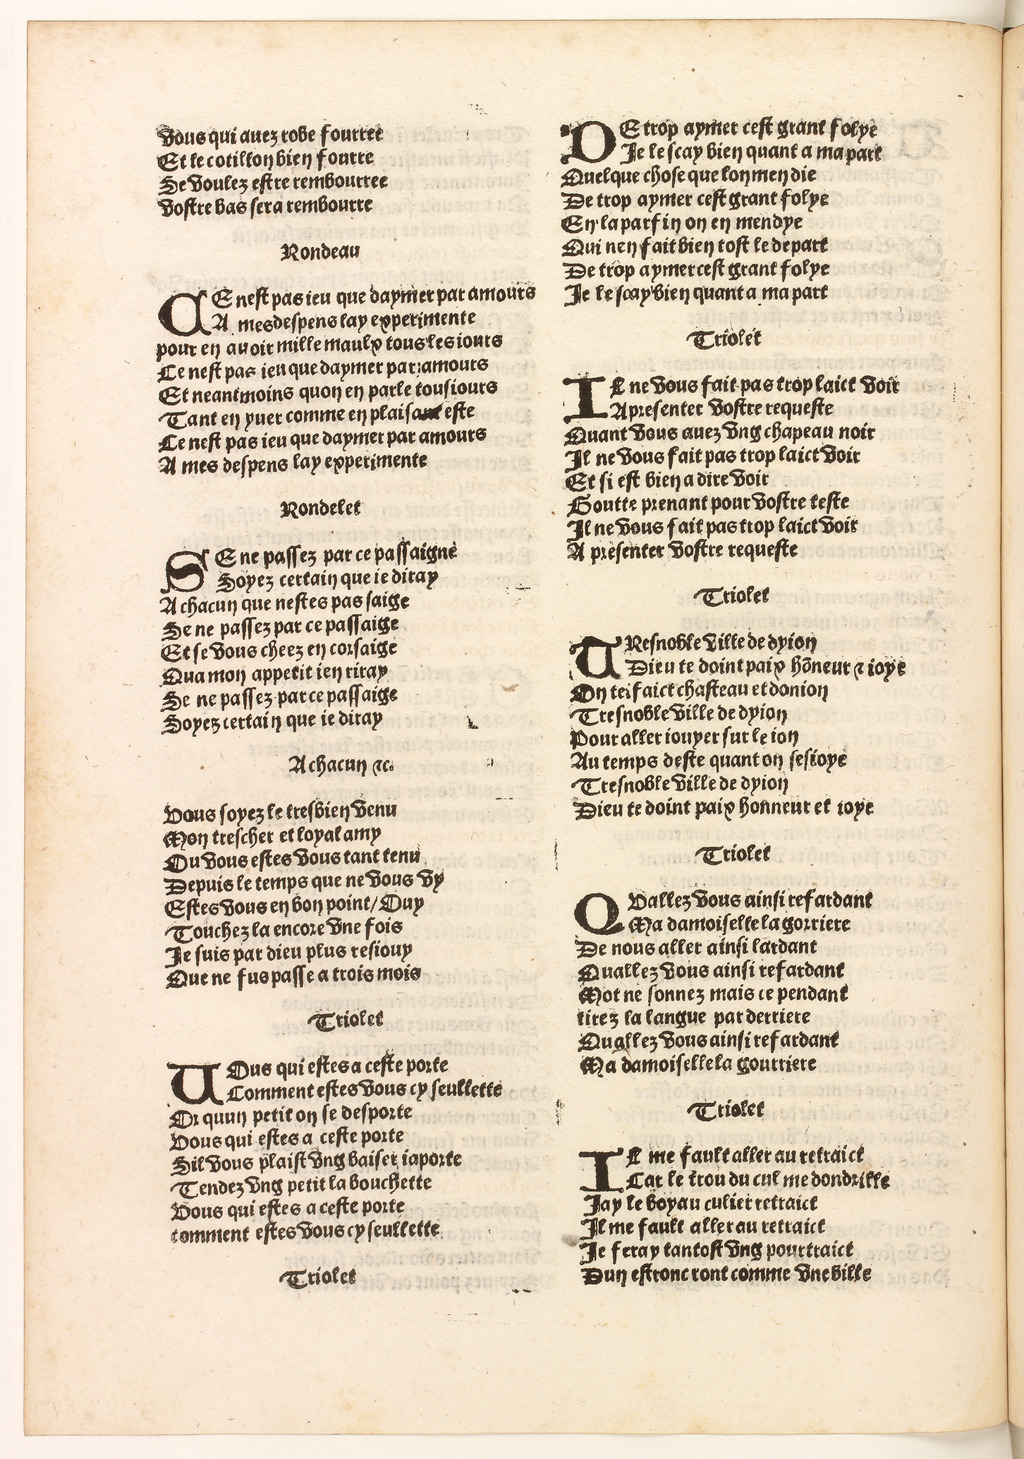 Vous qui auez robe fourree
Et le cotillon bien fourre
Se voulez estre rembourree
Vostre bas sera rembourre
Rondeau
CE nest pas ieu que daymer par amours
A mes despens lay experimente
pour en auoir mille maulx tous les iours
Ce nest pas ieu que daymer par amours
Et neantmoins quon en parle tousiours
Tant en yuer comme en plaisant este
Ce nest pas ieu que daymer par amours
A mes despens lay experimente
Rondelet
SE ne passez par ce passaigne
Soyez certain que ie diray
A chacun que nestes pas saige
Se ne passez par ce passaige
Et se vous cheez en corsaige
Qua mon appetit ien riray
Se ne passez par ce passaige
Soyez certain que ie diray
A chacun ⁊c.
Vous soyez le tresbien venu
Mon trescher et loyal amy
Ou vous estes vous tant tenu
Depuis le temps que ne vous vy
Estes vous en bon point/Ouy
Touchez la encore vne fois
Je suis par dieu plus resiouy
Que ne fus passe a trois mois
Triolet
VOus qui estes a ceste porte
Comment estes vous cy seullette
Or quun petit on se desporte
Vous qui estes a ceste porte
Sil vous plaist vng baiser iaporte
Tendez vng petit la bouchette
Vous qui estes a ceste porte
comment estes vous cy seullette
Triolet
DE trop aymer cest grant folye
Je le scay bien quant a ma part
Quelque chose que lon men die
De trop aymer cest grant folye
En la parfin on en mendye
Qui nen fait bien tost le depart
De trop aymer cest grant folye
Je le scay bien quant a ma part
Triolet
IL ne vous fait pas trop laict voir
A presenter vostre requeste
Quant vous auez vng chapeau noir
Il ne vous fait pas trop laict voir
Et si est bien a dire voir
Goutte prenant pour vostre teste
Il ne vous fait pas trop laict voir
A presenter vostre requeste
Triolet
TResnoble ville de dyion
Dieu te doint paix hõneur ⁊ ioye
On tei faict chasteau et donion
Tresnoble ville de dyion
Pour aller iouyer sur le ion
Au temps deste quant on sesioye
Tresnoble ville de dyion
Dieu te doint paix honneur et ioye
Triolet
QVallez vous ainsi refardant
Ma damoiselle la gorriere
De nous aller ainsi lardant
Quallez vous ainsi refardant
Mot ne sonnez mais ce pendant
tirez la langue par derriere
Quallez vous ainsi refardant
Ma damoiselle la gourriere
Triolet
IL me fault aller au retraict
Car le trou du cul me dondrille
Jay le boyau culier retraict
Il me fault aller au retraict
Je feray tantost vng pourtraict
Dun estronc ront comme vne bille